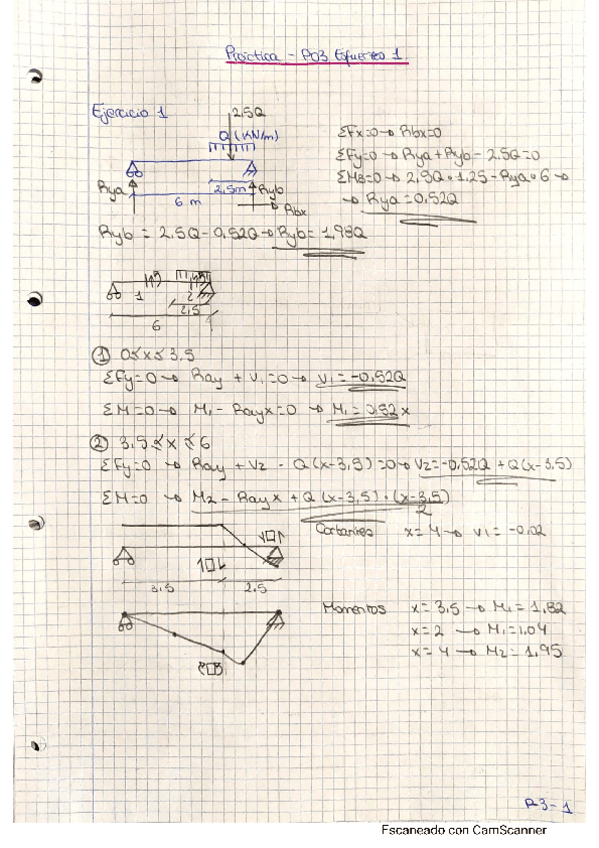 Práctica - P03 Esfuerzo 1
Ejercicio 1
2.5Q
Q (KN/m)
Rya
2,5m
Ryb
6 m
Rbx
ΣFx=0 → Rbx=0
ΣFy=0 → Rya + Ryb - 2.5Q=0
ΣMB=0 → 2,5Q · 1.25 - Rya · 6 →
→ Rya = 0,52Q
Ryb = 2.5Q - 0,52Q → Ryb = 1,98Q
1
2
2.5
6
① 0≤x≤3,5
ΣFy=0 → Ray + V1 = 0 → V1 = -0.52Q
ΣM=0 → M1 - Rayx = 0 → M1 = 0,52x
② 3,5≤x≤6
ΣFy=0 → Ray + V2 - Q(x-3,5) = 0 → V2 = -0,52Q + Q(x-3,5)
ΣM=0 → M2 - Rayx + Q(x-3,5)·(x-3,5)
2
Cortantes x=4 → V1 = -0.02
3.5 2.5
Momentos x=3,5 → M1 = 1,82
x=2 → M1=1,04
x=4 → M2=1,95
P3-1
Escaneado con CamScanner